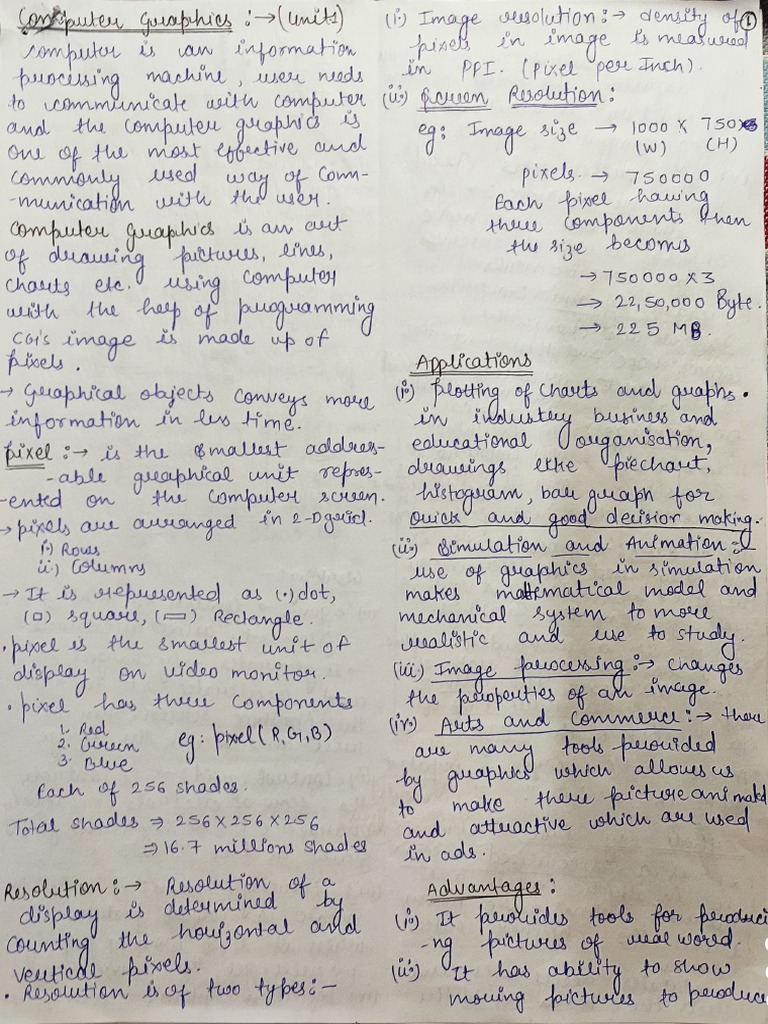 Computer Graphics :→ (Units)
Computer is an information
processing machine, user needs
to communicate with computer
and the computer graphics is
one of the most effective and
commonly used way of comm-
-munication with the user.
Computer graphics is an art
of drawing pictures, lines,
charts etc. using computer
with the help of programming
CG's image is made up of
pixels.
→ Graphical objects conveys more
information in less time.
pixel :→ is the smallest address-
-able graphical unit repres-
-ented on the computer screen.
→ pixels are arranged in 2-D grid.
i) Rows
ii) Columns
→ It is represented as (·) dot,
(□) square, (▭) Rectangle.
• pixel is the smallest unit of
display on video monitor.
• pixel has three components
1. Red
2. Green
3. Blue
eg: pixel (R,G,B)
Each of 256 shades.
Total shades ⇒ 256 × 256 × 256
⇒ 16.7 millions shades
Resolution :→ Resolution of a
display is determined by
counting the horizontal and
vertical pixels.
• Resolution is of two types :-
1
(i) Image resolution :→ density of
pixels in image is measured
in PPI. (Pixel per Inch).
(ii) Screen Resolution :
eg: Image size → 1000 × 750
(W) (H)
pixels → 750000
Each pixel having
three components then
the size becomes
→ 750000 × 3
→ 22,50,000 Byte.
→ 225 MB.
Applications
(i) plotting of charts and graphs.
in industry business and
educational organisation,
drawings like piechart,
histogram, bar graph for
quick and good decision making.
(ii) Simulation and Animation :→
use of graphics in simulation
makes mathematical model and
mechanical system to more
realistic and use to study.
(iii) Image processing :→ changes
the properties of an image.
(iv) Arts and Commerce :→ there
are many tools provided
by graphics which allows us
to make there picture animated
and attractive which are used
in ads.
Advantages :
(i) It provides tools for produci
-ng pictures of real world.
(ii) It has ability to show
moving pictures to produce